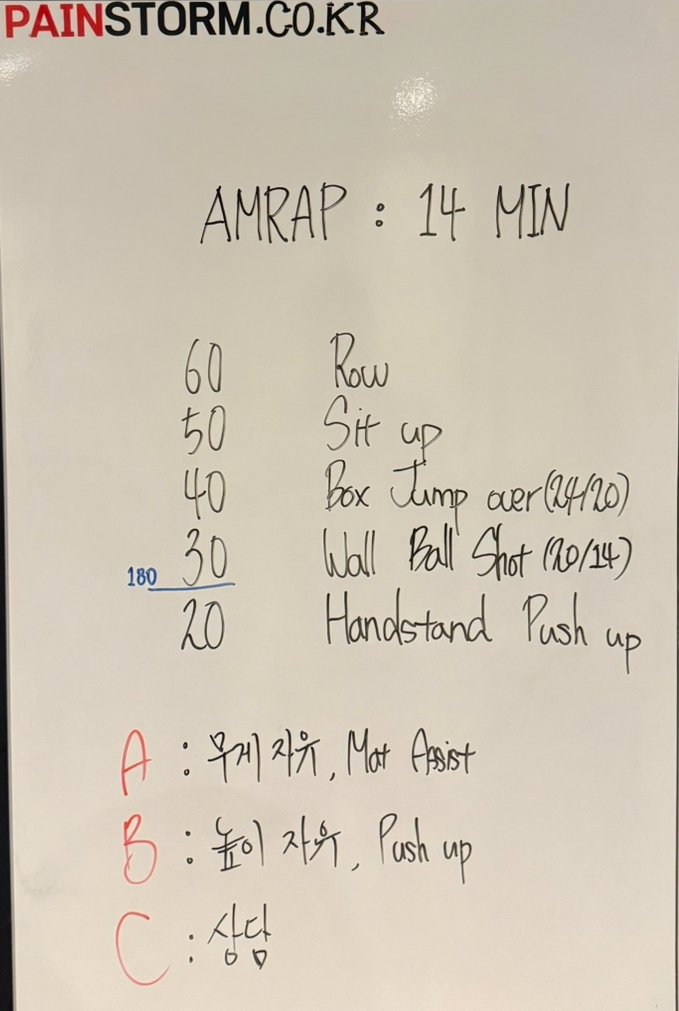 PAINSTORM.CO.KR
AMRAP : 14 MIN
60 Row
50 Sit up
40 Box Jump over (24/20)
180 30 Wall Ball Shot (20/14)
20 Handstand Push up
A : 무게 자유, Mat Assist
B : 높이 자유, Push up
C : 상담